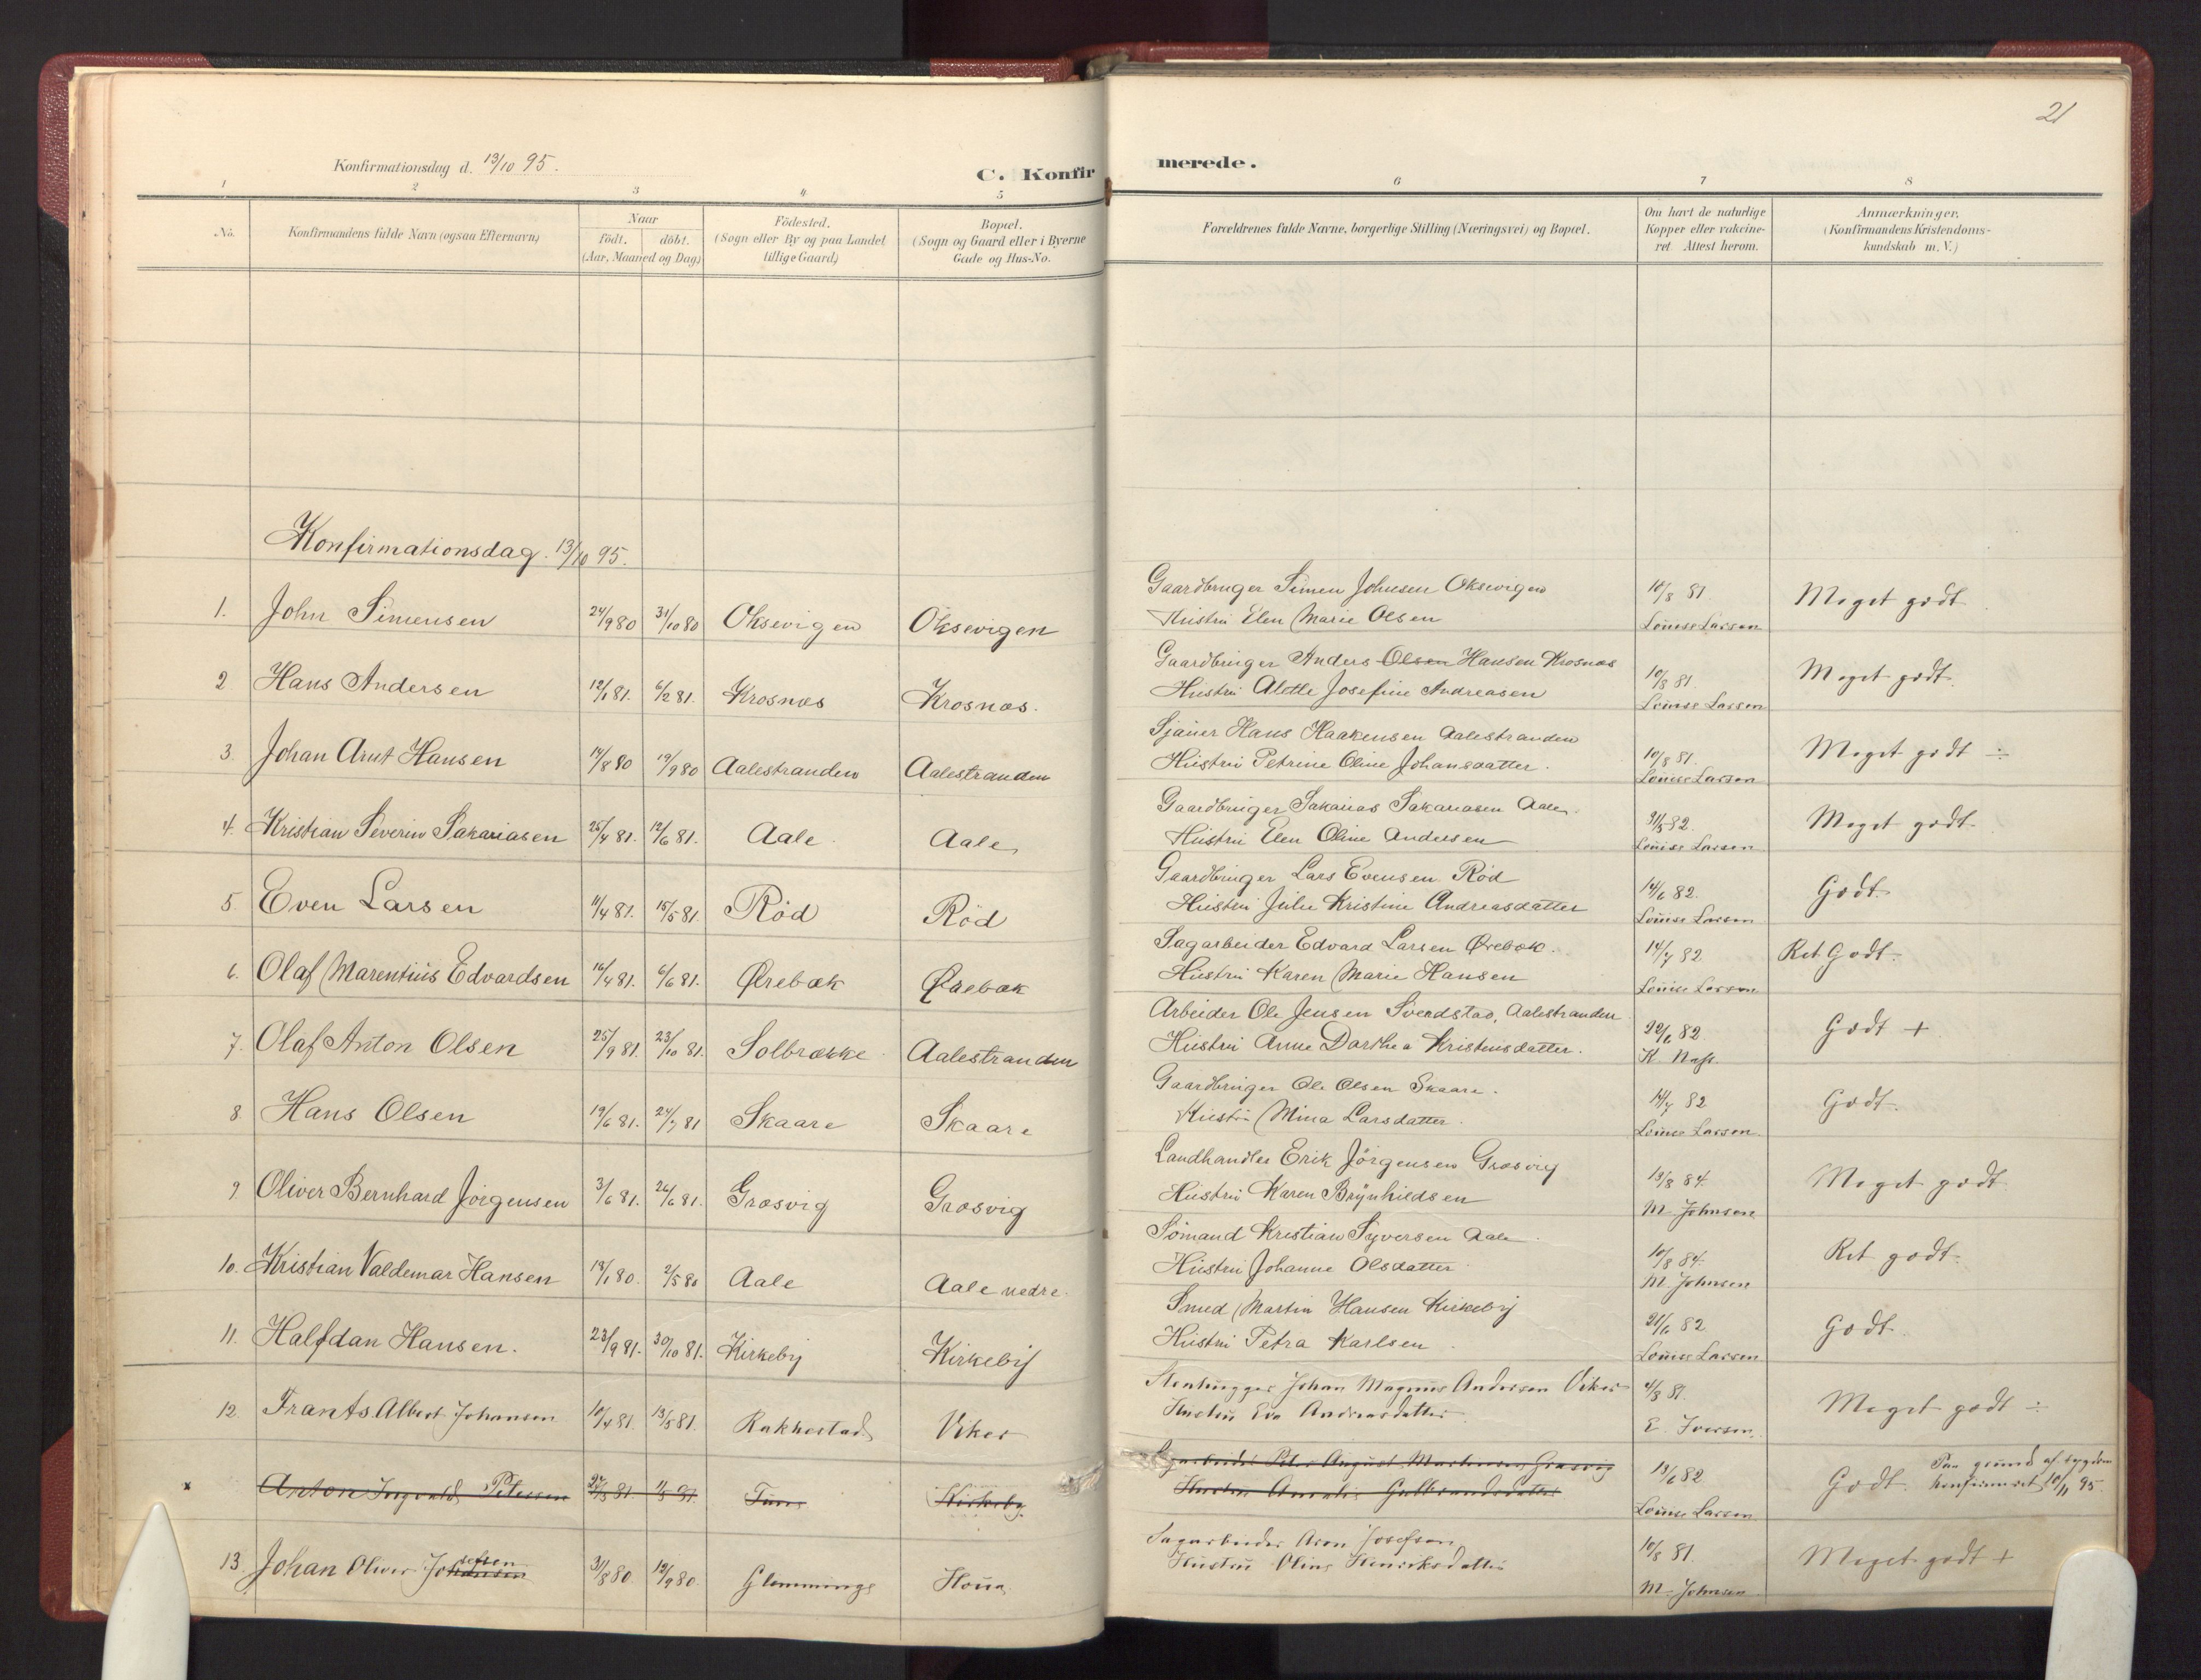 21
Konfirmationsdag d. 13/10 95.
C. Konfirmerede.
1 2 3 4 5 6 7 8
No. Konfirmandens fulde Navn (ogsaa Efternavn)
Naar født. døbt. (Aar, Maaned og Dag)
Födested. (Sogn eller By og paa Landet tillige Gaard)
Bopæl. (Sogn og Gaard eller i Byerne Gade og Hus-No.
Forældrenes fulde Navne, borgerlige Stilling (Næringsvei) og Bopæl.
Om havt de naturlige Kopper eller vakcineret. Attest herom.
Anmærkninger. (Konfirmandens Kristendomskundskab m. V.)
Konfirmationsdag. 13/10 95.
1. John Simensen 24/9 80 31/10 80 Oksevigen Oksevigen
Gaardbruger Simen Johnsen Oksevigen 10/8 81. Meget godt
Hustru Elen Marie Olsen Louise Larsen
2 Hans Andersen 12/1 81. 6/2 81. Krosnæs Krosnæs.
Gaardbruger Anders Olsen Hansen Krosnæs 10/8 81. Meget godt.
Hustru Alette Josefine Andreasen Louise Larsen
3. Johan Arnt Hansen 14/8 80 19/9 80 Aalestranden Aalestranden
Sjauer Hans Haakensen Aalestranden 10/8 81. Meget godt ÷
Hustru Petrine Oline Johansdatter. Louise Larsen
4. Kristian Severin Sakariasen 25/4 81. 12/6 81. Aale Aale
Gaardbruger Sakarias Sakariasen Aale. 31/5 82. Meget godt
Hustru Elen Oline Andersen Louise Larsen
5. Even Larsen 11/4 81. 15/5 81. Röd Röd
Gaardbruger Lars Evensen Röd 14/6 82. Godt.
Hustru Julie Kristine Andreasdatter Louise Larsen
6. Olaf Marentius Edvardsen 16/4 81. 6/6 81. Ørebæk Ørebæk
Sagarbeider Edvard Larsen Ørebæk. 14/7 82 Ret Godt.
Hustru Karen Marie Hansen Louise Larsen
7. Olaf Anton Olsen 25/9 81. 23/10 81. Solbrække Aalestranden
Arbeider Ole Jensen Svendstad, Aalestranden 22/6 82. Godt +
Hustru Anne Dorthea Kristensdatter. K. Næss.
8. Hans Olsen 19/6 81. 24/7 81 Skaare Skaare
Gaardbruger Ole Olsen Skaare. 14/7 82 Godt.
Hustru Mina Larsdatter. Louise Larsen.
9. Oliver Bernhard Jörgensen 3/6 81. 26/6 81. Græsvig Græsvig
Landhandler Erik Jörgensen Græsvig 13/8 84. Meget godt
Hustru Karen Brynhildsen M. Johnsen
10. Kristian Valdemar Hansen 13/1 80. 2/5 80 Aale Aale nedre.
Sömand Kristian Syversen Aale. 10/8 84. Ret godt.
Hustru Johanne Olsdatter. M. Johnsen
11. Halfdan Hansen. 23/9 81. 30/10 81. Kirkeby Kirkeby
Smed Martin Hansen Kirkeby 21/6 82. Godt.
Hustru Petra Karlsen Louise Larsen
12. Frants Albert Johansen 10/4 81. 13/5 81. Rakkestad Viker
Stenhugger Johan Magnus Andersen Viker 4/8 81. Meget godt ÷
Hustru Eva Andreasdatter E. Iversen.
x Anton Ingvald Petersen Tune Kirkeby
Peter August Martinsen Græsvig 13/6 82. Godt. Paa grund af sygdom
Hustru Amalie Gulbrandsdatter Louise Larsen konfirmeret 10/11 95.
13. Johan Oliver Johansen sefsen 31/8 80. 19/9 80. Glemminge Houa
Sagarbeider Aron Josefsen 10/8 81. Meget godt +
Hustru Oline Henriksdatter M. Johnsen